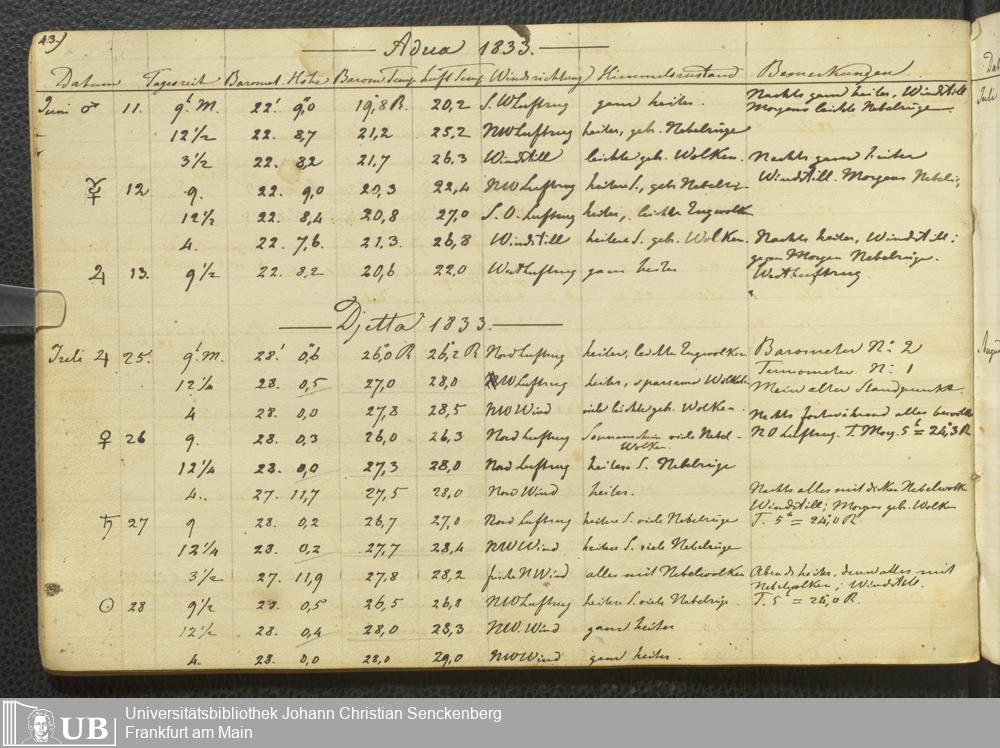 43.)
Adua 1833.
Datum Tageszeit Baromet. Höhe Barom Temp. Luft Temp Windrichtung Himmelszustand Bemerkungen
Juni ♂ 11. 9h M. 22' 9,"0 19,°8 R. 20,2 S. W Luftzug ganz heiter. Nachts ganz heiter, Windstill
Morgens leichte Nebelzüge
12 1/2 22. 8,7 21,2 25,2 NW Luftzug heiter, geb. Nebelzüge
3 1/2 22. 8,2 21,7 26,3 Windstill leichte geb. Wolken. Nachts ganz heiter
☿ 12 9. 22. 9,0 20,3 22,4 NW Luftzug heiterer S., geb Nebelz. Windstill. Morgens Nebelz;
12 1/2 22. 8,4 20,8 27,0 S. O. Luftzug heiter, leichte Zugwolk
4. 22. 7,6 21,3 26,8 Windstill heitere S. geb. Wolken. Nachts heiter, Windstill;
gegen Morgen Nebelzüge.
♃ 13. 9 1/2 22. 8,2 20,6 22,0 West Luftzug ganz heiter West Luftzug.
Djetta 1833.
Juli ♃ 25. 9h M. 28' 0,"6 26,°0 R 26,°2 R Nord Luftzug heiter, leichte Zugwolken Barometer No. 2
Termometer No. 1
12 1/4 28. 0,5 27,0 28,0 NW Luftzug heiter, sparsame Wolken Mein alter Standpunkt.
4 28. 0,0 27,8 28,5 NW Wind viele leichte geb. Wolken. Nachts fortwährend alles bewölkt
♀ 26 9. 28. 0,3 26,0 26,3 Nord Luftzug Sonnenschein viele Nebel- NO Luftzug. T. Morg. 5h = 24,°3 R
Wolken.
12 1/4 28. 0,0 27,3 28,0 Nord Luftzug heitere S. Nebelzüge
4. 27. 11,7 27,5 28,0 Nord Wind heiter. Nachts alles mit dicken Nebelwolk
Windstill; Morgens geb. Wolken
♄ 27 9 28. 0,2 26,7 27,0 Nord Luftzug heitere S. viele Nebelzüge T. 5h = 24,°0 R
12 1/4 28. 0,2 27,7 28,4 NW Wind heitere S. viele Nebelzüge
3 1/2 27. 11,9 27,8 28,2 frische N Wind alles mit Nebelwolken Abends heiter, dann alles mit
Nebelwolken; Windstill.
☉ 28 9 1/2 28. 0,5 26,5 26,8 NW Luftzug heitere S. viele Nebelzüge. T. 5h = 24,°0 R.
12 1/2 28. 0,4 28,0 28,3 NW. Wind ganz heiter
4. 28. 0,0 28,0 29,0 NW Wind ganz heiter.
Dat
Juli
UB
Universitätsbibliothek Johann Christian Senckenberg
Frankfurt am Main